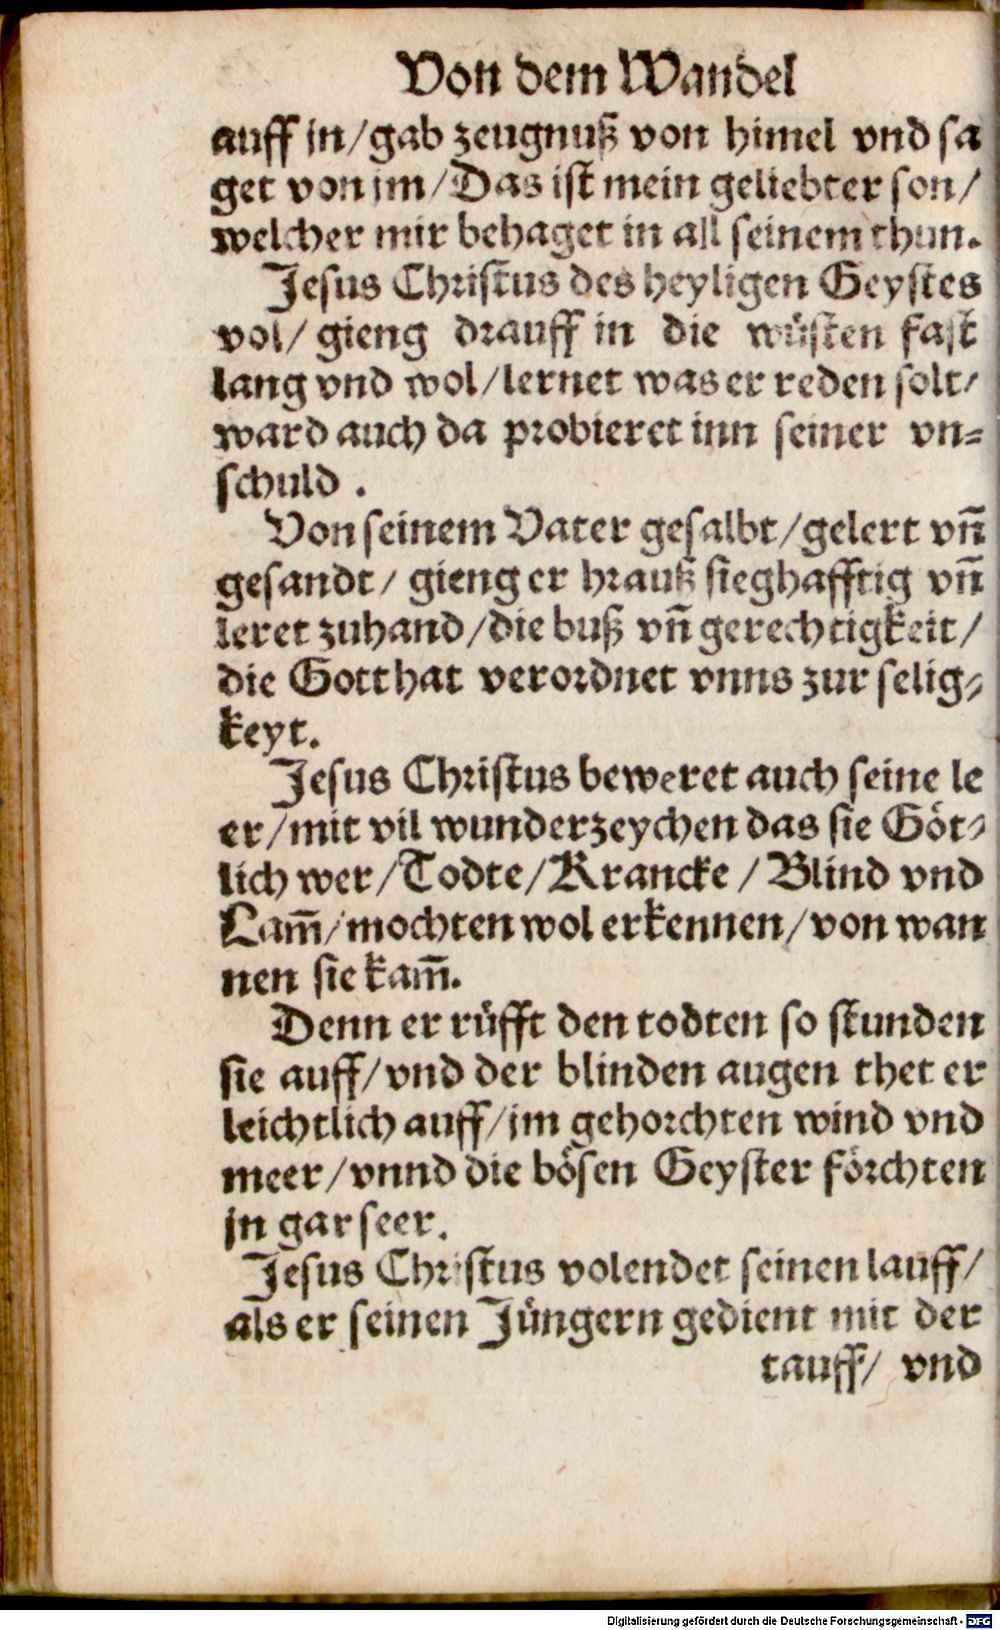 Von dem Wandel
auff jn/gab zeugnuß von himel vnd sa
get von jm/Das ist mein geliebter son/
welcher mir behaget in all seinem thun.
Jesus Christus des heyligen Geystes
vol/ gieng drauff in die wüsten fast
lang vnd wol/lernet was er reden solt/
ward auch da probieret inn seiner vn-
schuld .
Von seinem Vater gesalbt/gelert vñ
gesandt/ gieng er hrauß sieghafftig vñ
leret zuhand/die buß vñ gerechtigkeit/
die Gott hat verordnet vnns zur selig-
keyt.
Jesus Christus beweret auch seine le
er/mit vil wunderzeychen das sie Göt-
lich wer/Todte/Krancke/Blind vnd
Lam̄/mochten wol erkennen/von wan
nen sie kam̄.
Denn er rüfft den todten so stunden
sie auff/vnd der blinden augen thet er
leichtlich auff/jm gehorchten wind vnd
meer/vnnd die bösen Geyster förchten
jn gar seer.
Jesus Christus volendet seinen lauff/
als er seinen Jüngern gedient mit der
tauff/ vnd
Digitalisierung gefördert durch die Deutsche Forschungsgemeinschaft - DFG